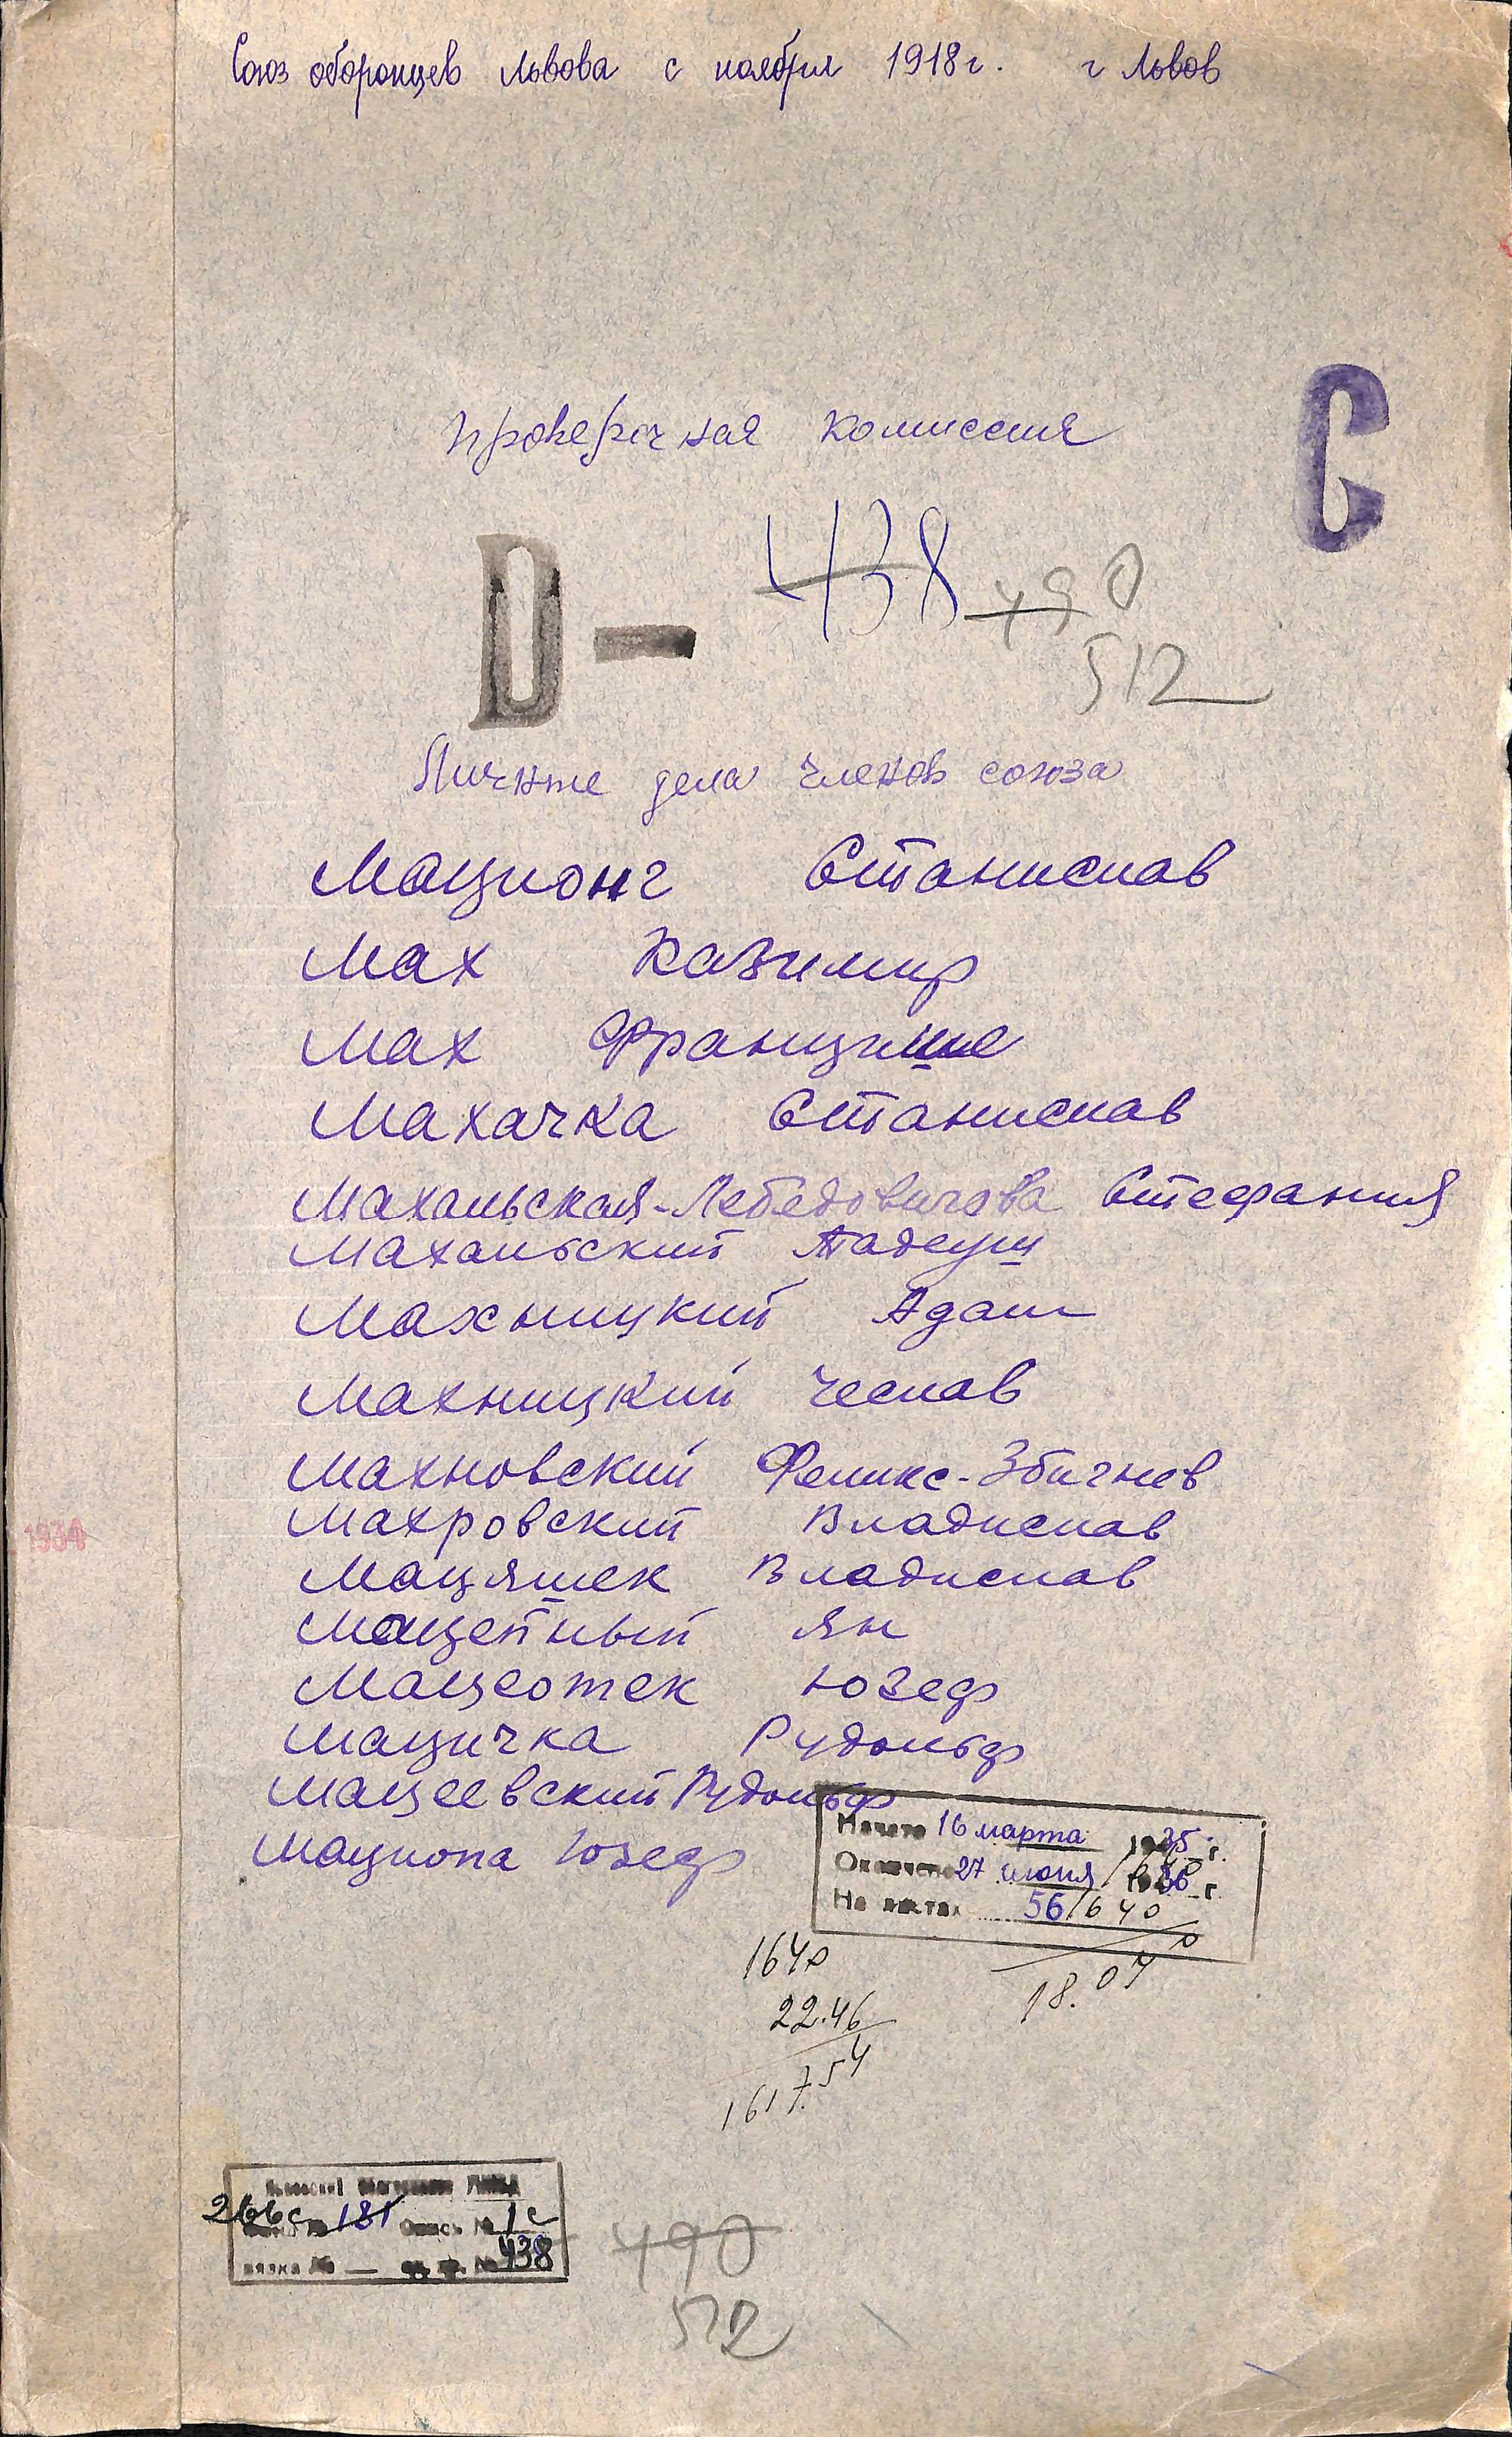 Союз оборонцев Львова с ноября 1918 г. г Львов
Проверочная комиссия
С
D-
438 490
512
Личные дела членов союза
Мационг Станислав
Мах Казимир
Мах Францише
Махачка Станислав
Махальская-Лебедовичова Стефания
Махальский Тадеуш
Махницкий Адам
Махницкий Чеслав
Махновский Феликс-Збигнев
Махровский Владислав
1934
Мацяшек Владислав
Мацейный Ян
Мацеотек Юзеф
Мацичка Рудольф
Мацеевский Рудольф
Мациопа Юзеф
Начато 16 марта 1935 г.
Окончено 27 июня г.
На листах 56/640
1640
18.04
22.46
1617.54
266с 181 Опись № 1с
вязка № — № 438
490
512